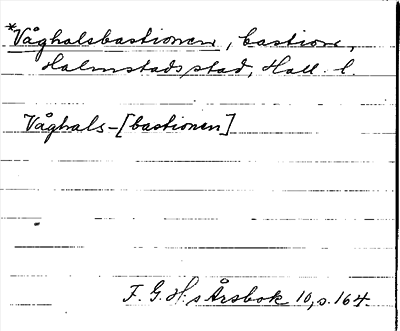 *Våghalsbastionen, bastion,
Halmstads stad, Hall. l.
Våghals-[bastionen]
F. G. H:s Årsbok 10, s. 164.